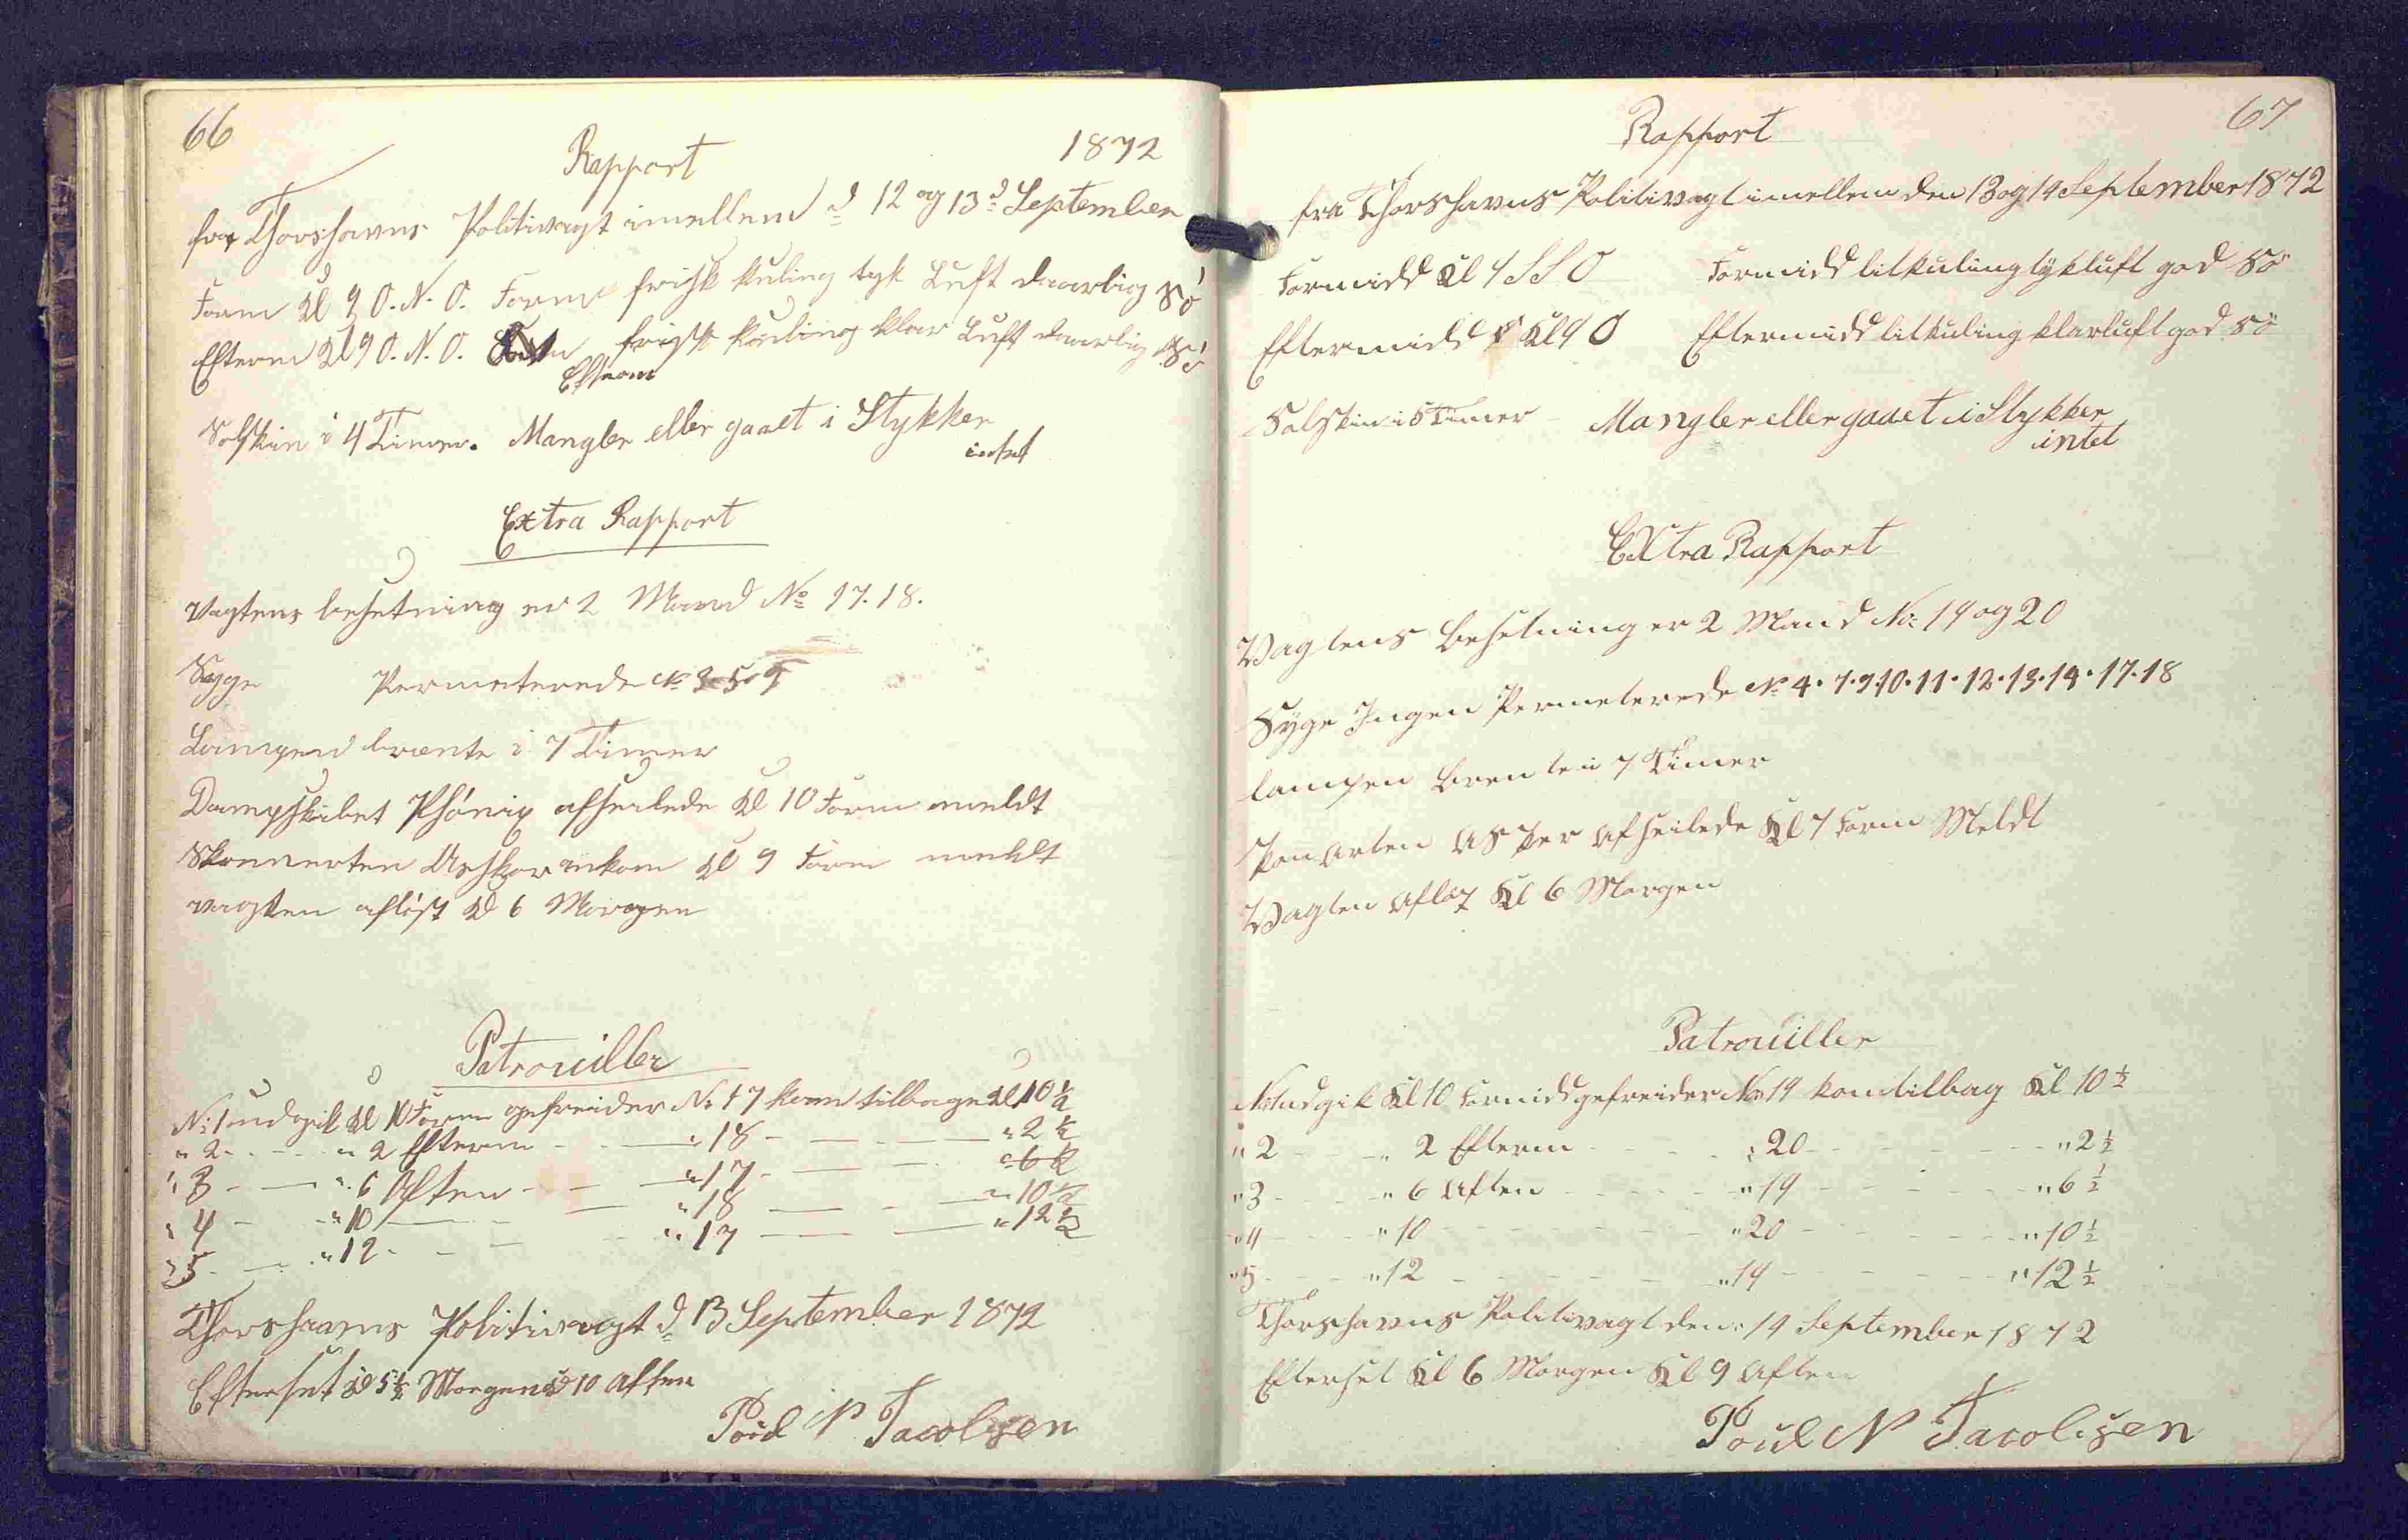 66
Rapport
1872
fra Thorshavns Politivagt imellem d 12 og 13d September
Form Kl 9 O.N.O. Form frisk kuling tyk Luft daarlig Sö
Efterm Kl 9 O.N.O. Efterm frisk kuling klar Luft daarlig Sö
Solskin i 4 Timer. Mangler eller gaaet i Stykker
intet
Extra Rapport
Vagtens besetning er 2 Mand No 17. 18.
Syge Permeterede No 3 5 9
Lampen brænte i 7 Timer
Dampskibet Phönix afseilede Kl 10 Form meldt
Skonnerten ankom Kl 9 Form meldt
vagten aflöst Kl 6 Morgen
Patrouiller
No 1 udgik Kl 10 Form gefreider No 17 kom tilbage Kl 10 1/2
" 2 - - " 2 Efterm - - " 18 - - " 2 1/2
" 3 - - " 6 Aften - - " 17 - - " 6 1/2
" 4 - - " 10 - - " 18 - - " 10 1/2
" 5 - - " 12 - - " 17 - - " 12 1/2
Thorshavns Politivagt d 13 September 1872
Efterset Kl 5 1/2 Morgen Kl 10 Aften
Poul N Jacobsen
67
Rapport
fra Thorshavns Politivagt imellem den 13 og 14 September 1872
Formidd Kl 9 SSO Formidd litkuling tykluft god Sö
Eftermidd Kl 9 O Eftermidd litkuling klarluft god Sö
Solskin i 5 Timer Mangler eller gaaet i Stykker
intet
Extra Rapport
Vagtens Besetning er 2 Mand No: 19 og 20
Syge Ingen Permeterede No 4. 7. 9. 10. 11. 12. 13. 14. 17. 18
lampen Brente i 7 Timer
Afseilede Kl 7 Form Meldt
Vagten Kl 6 Morgen
Patrouiller
No 1 udgik Kl 10 Formidd gefreider No 19 kom tilbag Kl 10 1/2
" 2 - - " 2 Efterm - - " 20 - - " 2 1/2
" 3 - - " 6 Aften - - " 19 - - " 6 1/2
" 4 - - " 10 - - " 20 - - " 10 1/2
" 5 - - " 12 - - " 19 - - " 12 1/2
Thorshavns Politivagt den: 14 September 1872
Efterset Kl 6 Morgen Kl 9 Aften
Poul N Jacobsen